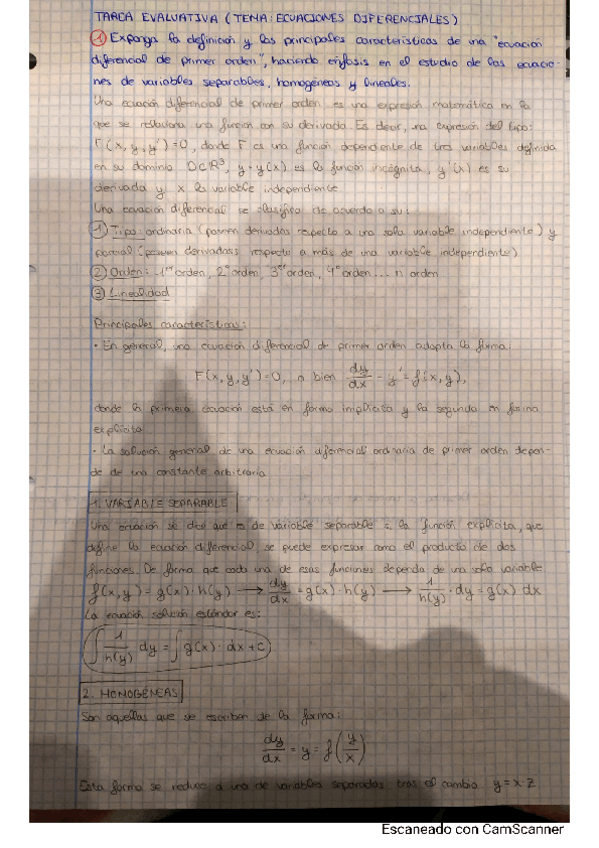 TAREA EVALUATIVA (TEMA: ECUACIONES DIFERENCIALES)
① Exponga la definición y las principales características de una "ecuación
diferencial de primer orden", haciendo énfasis en el estudio de las ecuacio-
nes de variables separables, homogéneas y lineales.
Una ecuación diferencial de primer orden es una expresión matemática en la
que se relaciona una función con su derivada. Es decir, una expresión del tipo:
F(x, y, y')=0, donde F es una función dependiente de tres variables definida
en su dominio D⊂R³, y=y(x) es la función incógnita, y'(x) es su
derivada y x la variable independiente
Una ecuación diferencial se clasifica de acuerdo a su:
① Tipo: ordinaria (poseen derivadas respecto a una sola variable independiente) y
parcial (poseen derivadas respecto a más de una variable independiente)
② Orden: 1er orden, 2º orden, 3er orden, 4º orden ... n orden
③ Linealidad
Principales características:
· En general, una ecuación diferencial de primer orden adopta la forma:
F(x, y, y')=0, o bien dy/dx = y' = f(x, y),
donde la primera ecuación está en forma implícita y la segunda en forma
explícita
· La solución general de una ecuación diferencial ordinaria de primer orden depen-
de de una constante arbitraria
1. VARIABLE SEPARABLE
Una ecuación se dice que es de variable separable si la función explícita, que
define la ecuación diferencial, se puede expresar como el producto de dos
funciones. De forma que cada una de esas funciones dependa de una sola variable
f(x,y) = g(x)·h(y) → dy/dx = g(x)·h(y) → 1/h(y) · dy = g(x) dx
La ecuación solución estándar es:
∫ 1/h(y) dy = ∫ g(x)· dx + C
2. HOMOGÉNEAS
Son aquellas que se escriben de la forma:
dy/dx = y = f(y/x)
Esta forma se reduce a una de variables separadas tras el cambio y = x·z
Escaneado con CamScanner